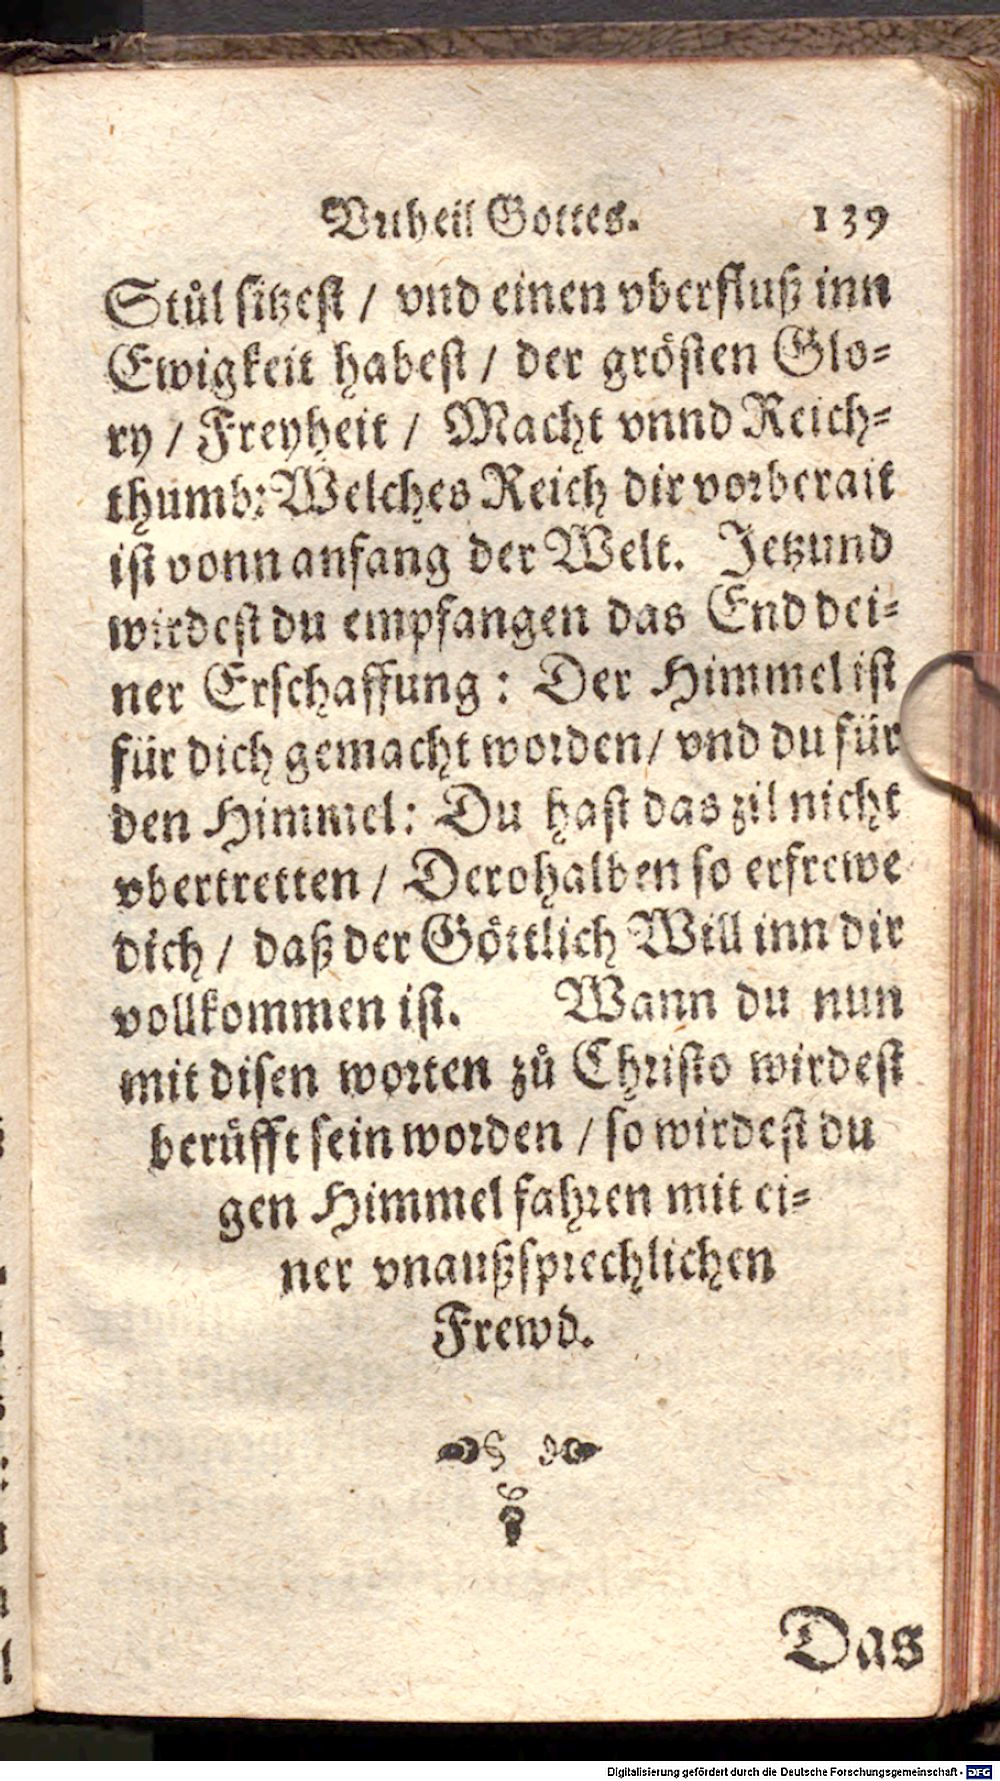 Vrtheil Gottes. 139
Stůl sitzest / vnd einen vberfluß inn
Ewigkeit habest / der grösten Glo-
ry / Freyheit / Macht vnnd Reich-
thumb: Welches Reich dir vorberait
ist vonn anfang der Welt. Jetzund
wirdest du empfangen das End dei-
ner Erschaffung : Der Himmel ist
für dich gemacht worden / vnd du für
den Himmel: Du hast das zil nicht
vbertretten / Derohalben so erfrewe
dich / daß der Göttlich Will inn dir
vollkommen ist. Wann du nun
mit disen worten zů Christo wirdest
berůfft sein worden / so wirdest du
gen Himmel fahren mit ei-
ner vnaußsprechlichen
Frewd.
Das
Digitalisierung gefördert durch die Deutsche Forschungsgemeinschaft - DFG